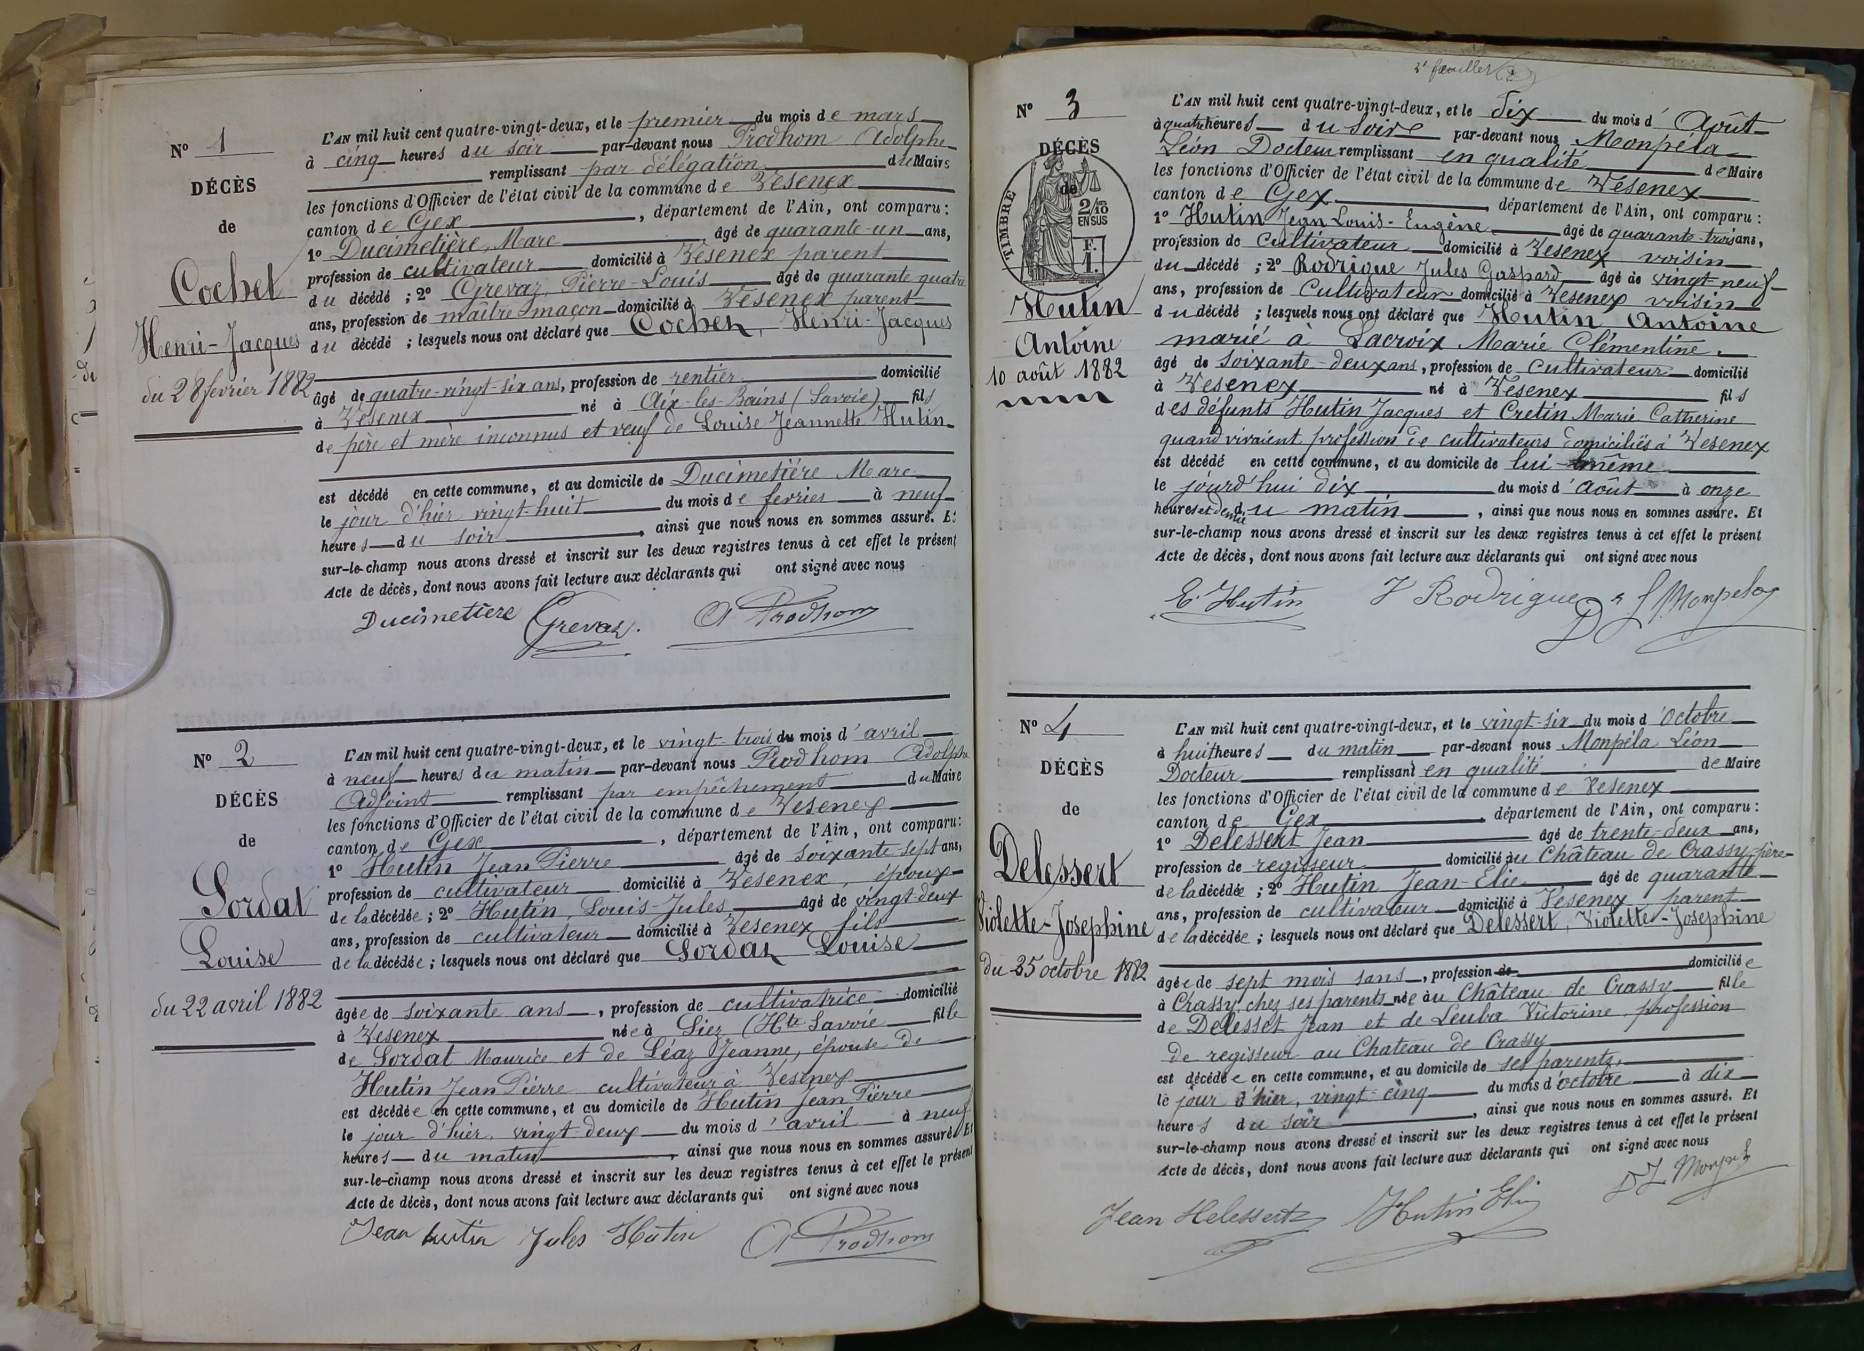 N° 1
DÉCÈS
de
Cochet
Henri-Jacques
du 28 fevrier 1882
L'AN mil huit cent quatre-vingt-deux, et le premier du mois de mars
à cinq heures du soir par-devant nous Prodhom Adolphe
remplissant par délégation du Maire
les fonctions d'Officier de l'état civil de la commune de Vesenex
canton de Gex, département de l'Ain, ont comparu :
1° Ducimetière, Marc âgé de quarante-un ans,
profession de cultivateur domicilié à Vesenex parent
du décédé ; 2° Grevaz, Pierre-Louis âgé de quarante quatre
ans, profession de maître maçon domicilié à Vesenex parent
du décédé ; lesquels nous ont déclaré que Cochet, Henri-Jacques
âgé de quatre-vingt-six ans, profession de rentier domicilié
à Vesenex né à Aix-les-Bains (Savoie) fils
de père et mère inconnus et veuf de Louise Jeannette Hutin
est décédé en cette commune, et au domicile de Ducimetière Marc
le jour d'hier vingt-huit du mois de fevrier à neuf
heures du soir, ainsi que nous nous en sommes assuré. Et
sur-le-champ nous avons dressé et inscrit sur les deux registres tenus à cet effet le présent
Acte de décès, dont nous avons fait lecture aux déclarants qui ont signé avec nous
Ducimetière Grevaz. A Prodhom
N° 2
DÉCÈS
de
Sordat
Louise
du 22 avril 1882
L'AN mil huit cent quatre-vingt-deux, et le vingt-trois du mois d'avril
à neuf heures du matin par-devant nous Prodhom Adolphe
Adjoint remplissant par empêchement du Maire
les fonctions d'Officier de l'état civil de la commune de Vesenex
canton de Gex, département de l'Ain, ont comparu :
1° Hutin Jean Pierre âgé de soixante-sept ans,
profession de cultivateur domicilié à Vesenex, époux
de la décédée ; 2° Hutin, Louis-Jules âgé de vingt-deux
ans, profession de cultivateur domicilié à Vesenex fils
de la décédée ; lesquels nous ont déclaré que Sordat Louise
âgée de soixante ans, profession de cultivatrice domicilié
à Vesenex née à Siez (Hte Savoie fille
de Sordat Maurice et de Léaz Jeanne, épouse de
Hutin Jean Pierre cultivateur à Vesenex
est décédée en cette commune, et au domicile de Hutin Jean Pierre
le jour d'hier, vingt-deux du mois d'avril à neuf
heures du matin, ainsi que nous nous en sommes assuré. Et
sur-le-champ nous avons dressé et inscrit sur les deux registres tenus à cet effet le présent
Acte de décès, dont nous avons fait lecture aux déclarants qui ont signé avec nous
Jean Hutin Jules Hutin A Prodhom
2e feuillet
N° 3
DÉCÈS
de
TIMBRE
2/10
EN SUS
F.
1.
Hutin
Antoine
10 août 1882
L'AN mil huit cent quatre-vingt-deux, et le dix du mois d'Août
à quatre heures du soir par-devant nous Monpéla
Léon Docteur remplissant en qualité de Maire
les fonctions d'Officier de l'état civil de la commune de Vésenex
canton de Gex, département de l'Ain, ont comparu :
1° Hutin Jean Louis-Eugène âgé de quarante-trois ans,
profession de cultivateur domicilié à Vesenex voisin
du décédé ; 2° Rodrigue Jules Gaspard âgé de vingt neuf
ans, profession de Cultivateur domicilié à Vesenex voisin
du décédé ; lesquels nous ont déclaré que Hutin Antoine
marié à Lacroix Marie Clémentine
âgé de soixante-deux ans, profession de cultivateur domicilié
à Vesenex né à Vesenex fils
des défunts Hutin Jacques et Cretin Marie Catherine
quand vivaient profession de cultivateurs domiciliés à Vesenex
est décédé en cette commune, et au domicile de lui-même
le jourd'hui dix du mois d'août à onze
heures et demie du matin, ainsi que nous nous en sommes assuré. Et
sur-le-champ nous avons dressé et inscrit sur les deux registres tenus à cet effet le présent
Acte de décès, dont nous avons fait lecture aux déclarants qui ont signé avec nous
E. Hutin J Rodrigue Dr L Monpela
N° 4
DÉCÈS
de
Delessert
Violette-Josephine
du 25 octobre 1882
L'AN mil huit cent quatre-vingt-deux, et le vingt-six du mois d'Octobre
à huit heures du matin par-devant nous Monpéla Léon
Docteur remplissant en qualité de Maire
les fonctions d'Officier de l'état civil de la commune de Vesenex
canton de Gex, département de l'Ain, ont comparu :
1° Delessert Jean âgé de trente-deux ans,
profession de regisseur domicilié au Château de Crassy, père
de la décédée ; 2° Hutin Jean-Elie âgé de quarante
ans, profession de cultivateur domicilié à Vesenex parent
de la décédée ; lesquels nous ont déclaré que Delessert, Violette-Josephine
âgée de sept mois sans, profession de domiciliée
à Crassy chez ses parents née au Château de Crassy fille
de Delesset Jean et de Leuba Victorine, profession
de regisseur au Chateau de Crassy
est décédée en cette commune, et au domicile de ses parents,
le jour d'hier, vingt-cinq du mois d'octobre à dix
heures du soir, ainsi que nous nous en sommes assuré. Et
sur-le-champ nous avons dressé et inscrit sur les deux registres tenus à cet effet le présent
Acte de décès, dont nous avons fait lecture aux déclarants qui ont signé avec nous
Jean Delessert Hutin Eli Dr L Monpela